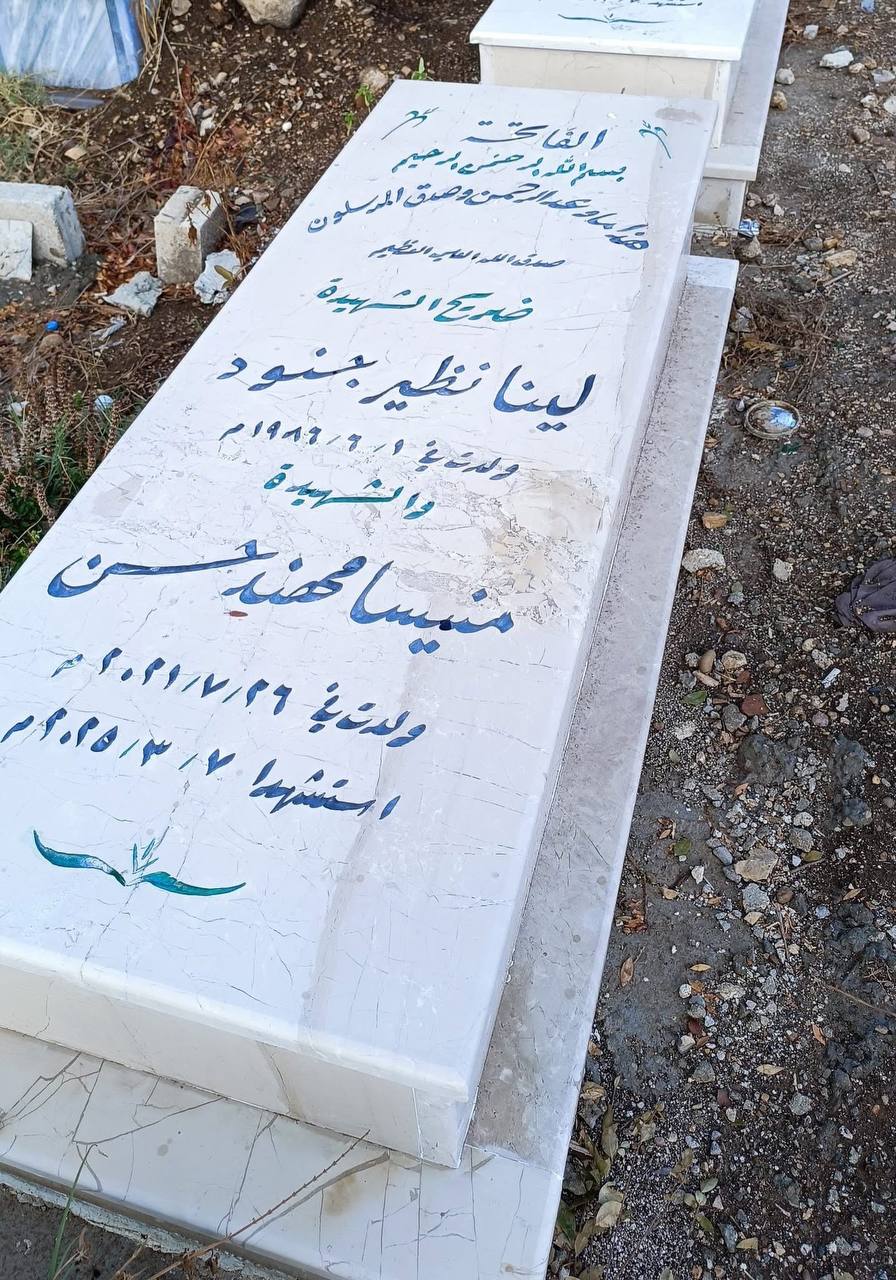 الفاتحة
بسم الله الرحمن الرحيم
هذا ما وعد الرحمن وصدق المرسلون
صدق الله العلي العظيم
ضريح الشهيدة
لينا نظير جنود
ولدت في ١/٦/١٩٨٦م
والشهيدة
منيسا مهند حسن
ولدت في ٢٦/٧/٢٠٢١م
استشهدا ٧/٣/٢٠٢٥م